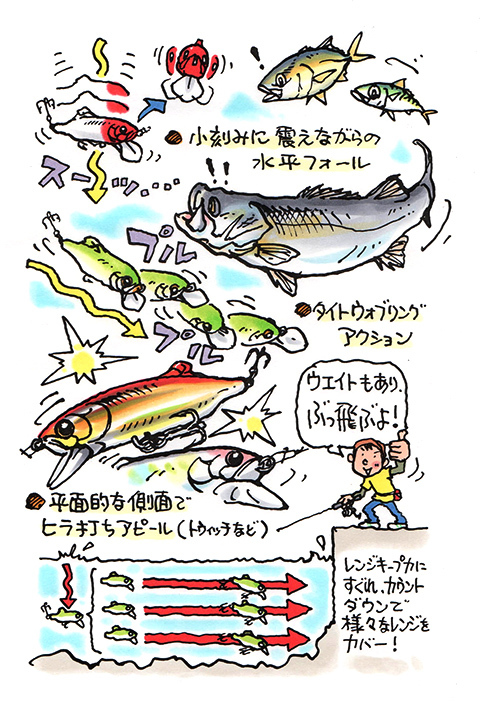 !
小刻みに震えながらの
水平フォール
スーッ…
!!
プル
プル
タイトウォブリング
アクション
ウエイトもあり、
ぶっ飛ぶよ!
平面的な側面で
ヒラ打ちアピール(トゥイッチなど)
レンジキープ力に
すぐれ、カウント
ダウンで
様々なレンジを
カバー!